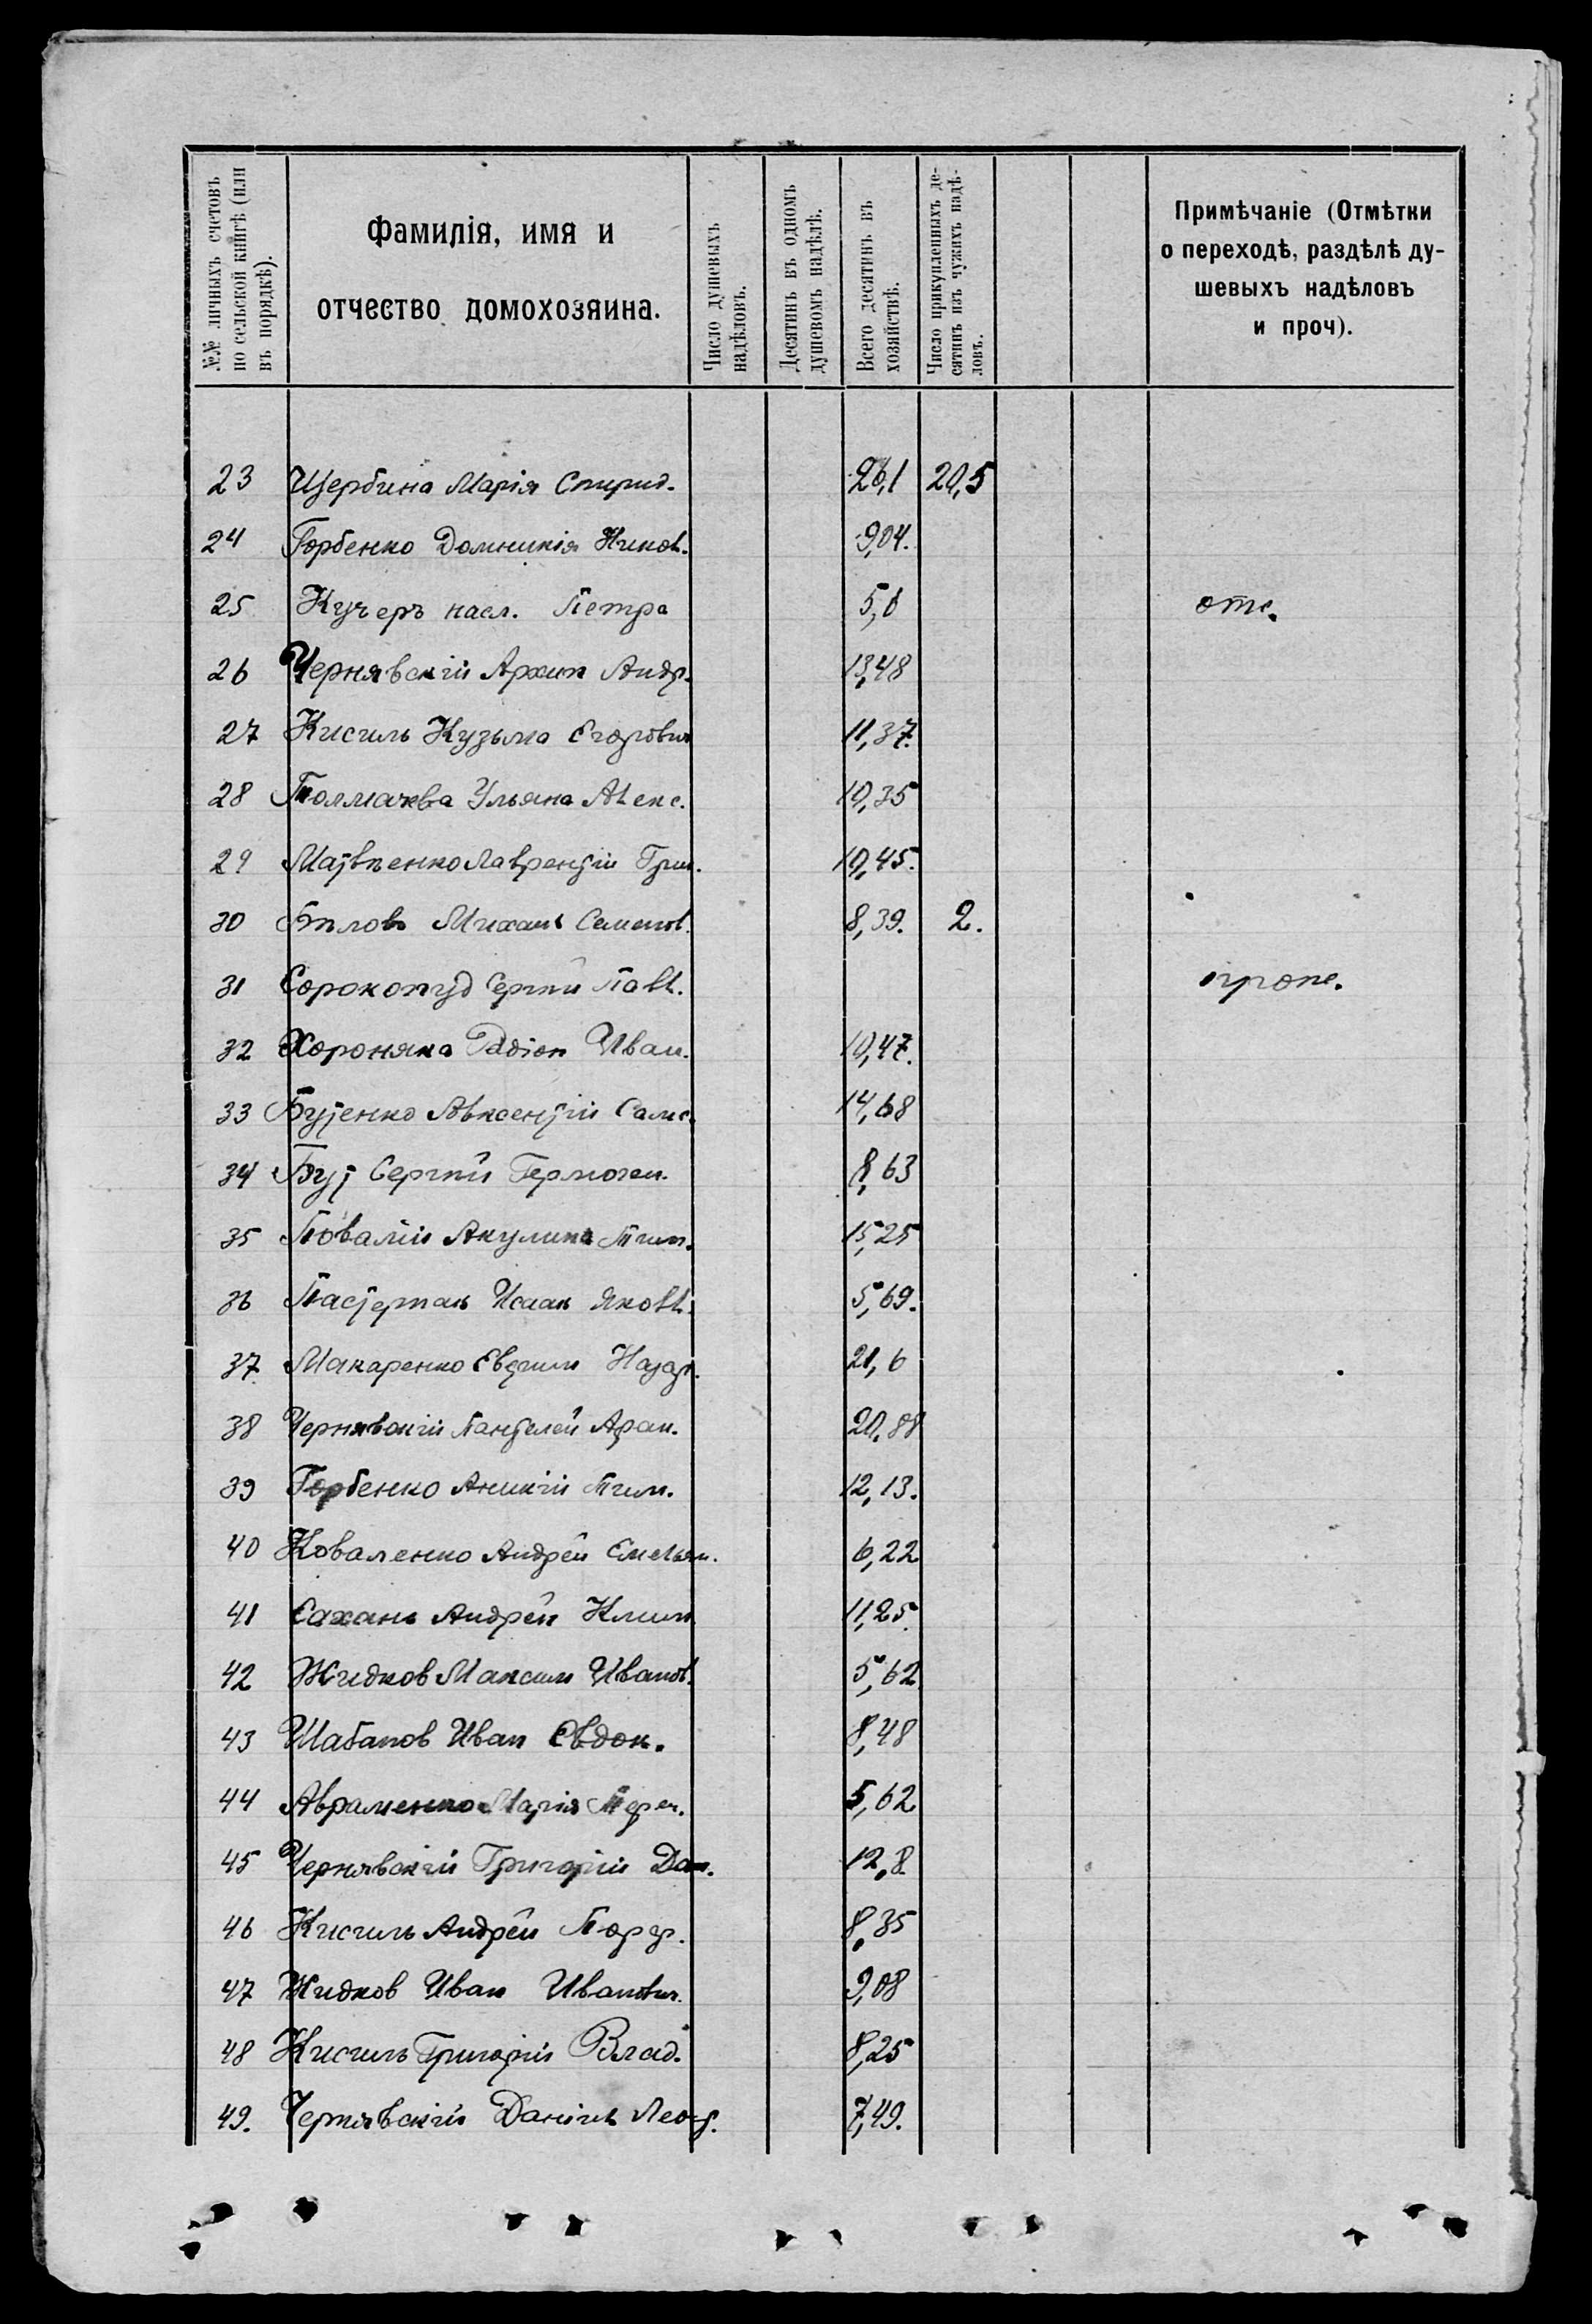 №№ личныхъ счетовъ по сельской книгѣ (или въ порядкѣ).
Фамилія, имя и отчество домохозяина.
Число душевыхъ надѣловъ.
Десятинъ въ одномъ душевомъ надѣлѣ.
Всего десятинъ въ хозяйствѣ.
Число прикупленныхъ десятинъ изъ чужихъ надѣловъ.
Примѣчаніе (Отмѣтки
о переходѣ, раздѣлѣ ду-
шевыхъ надѣловъ
и проч).
23 Щербина Марія Спирид. 26,1 20,5
24 Горбенко Домникія Ников. 9,04.
25 Кучеръ насл. Петра 5,6 отс.
26 Чернявскій Архип Андр. 13,48
27 Кисиль Кузьма Егорович 11,37.
28 Толмачева Ульяна Алекс. 10,35
29 Матвѣенко Лаврентій Григ. 10,45.
30 Бѣловъ Михаил Семенов. 8,39. 2.
31 Сорокопуд Сергѣй Павл.
32 Хороняка Радіон Иван. 10,47.
33 Бутенко Авксентій Самс. 14,68
34 Бут Сергѣй Гермоген. 8,63
35 Повалій Акулина Тим. 15,25
36 Пастернак Исаак Яковл. 5,69.
37. Макаренко Евдоким Назар. 21,6
38 Чернявскій Пантелей Аран. 20,88
39 Горбенко Аникій Тим. 12,13.
40 Коваленко Андрей Емельян. 6,22
41 Сахань Андрей Клим. 11,25.
42 Жидков Максим Иванов. 5,62
43 Шабанов Иван Евдок. 8,48
44 Авраменко Марія Терен. 5,62
45 Чернявскій Григорій Дан. 12,8
46 Кисиль Андрей Порф. 8,35
47 Жидков Иван Иванович. 9,08
48 Кисиль Григорій Влад. 8,25
49. Чернявскій Даніил Леон. 7,49.